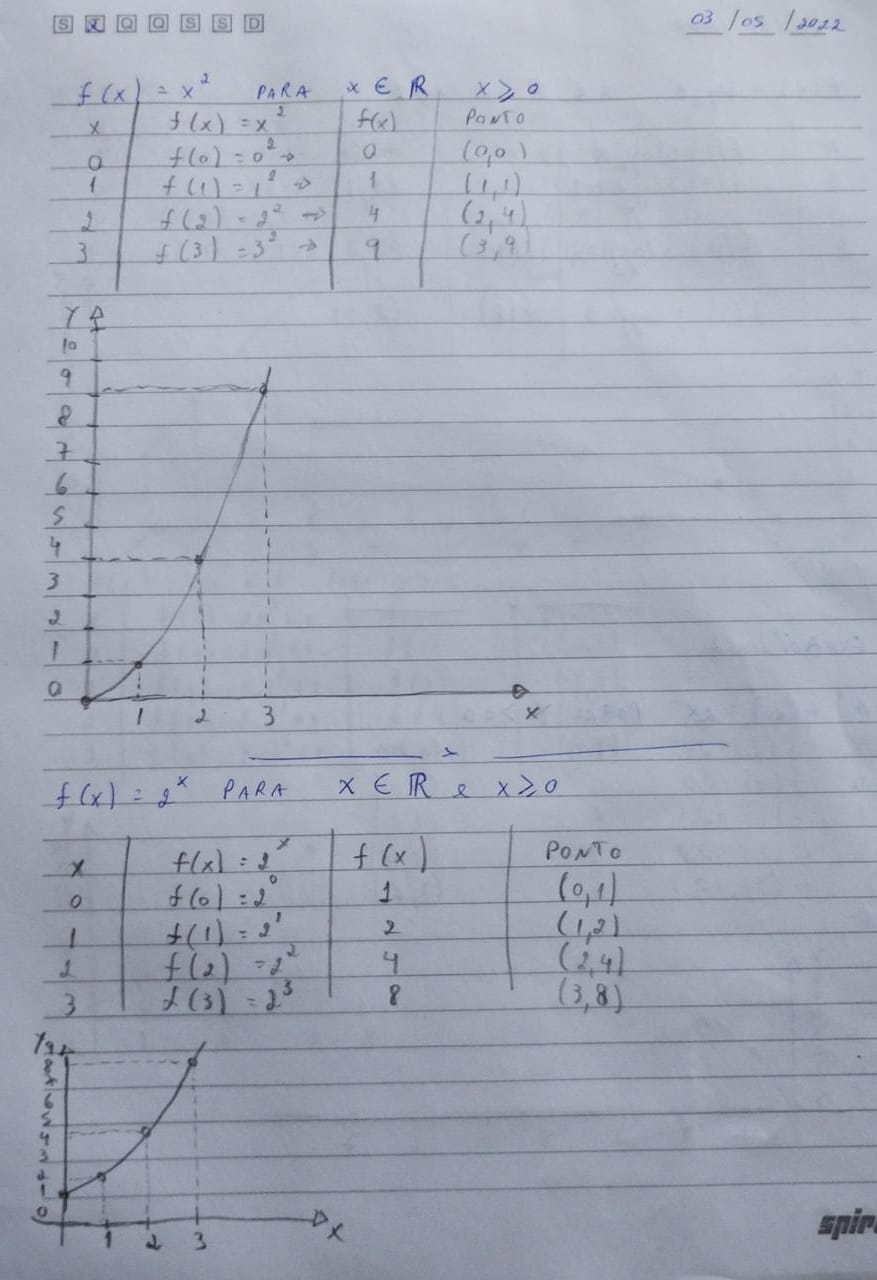 S X Q Q S S D
03 / 05 / 2022
f(x) = x² PARA x ∈ ℝ x ⩾ 0
x f(x) = x² f(x) PONTO
0 f(0) = 0² → 0 (0,0)
1 f(1) = 1² → 1 (1,1)
2 f(2) = 2² → 4 (2,4)
3 f(3) = 3² → 9 (3,9)
Y
10
9
8
7
6
5
4
3
2
1
0
1 2 3 x
f(x) = 2ˣ PARA x ∈ ℝ e x ⩾ 0
x f(x) = 2ˣ f(x) PONTO
0 f(0) = 2⁰ 1 (0,1)
1 f(1) = 2¹ 2 (1,2)
2 f(2) = 2² 4 (2,4)
3 f(3) = 2³ 8 (3,8)
Y
9
8
7
6
5
4
3
2
1
0
1 2 3 x